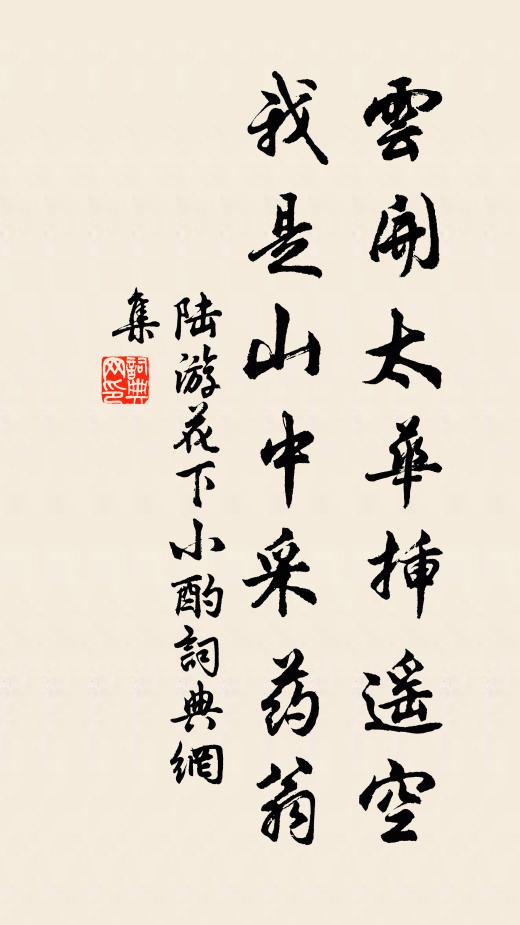 雲開太華插遥空
我是山中采药翁
陆游花下小酌詞典網
集
詞典網印